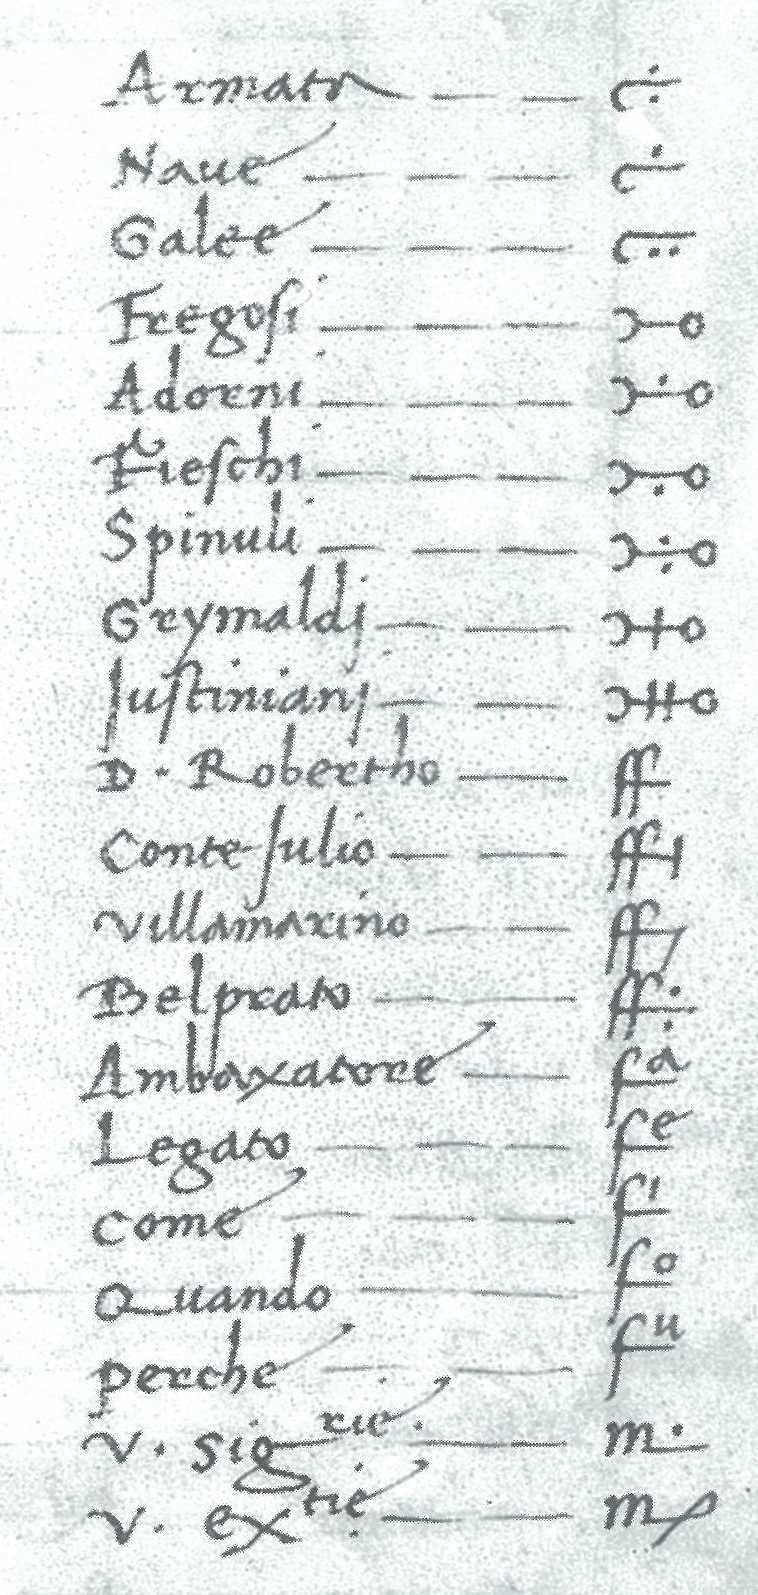 Armata
Naue
Galee
Fregosi
Adorni
Fieschi
Spinuli
Grymaldj
Justinianj
D. Robertho ff
Conte Julio ff
Villamarino ff
Belprato ff
Ambaxatore fa
Legato fe
come fi
Quando fo
perche fu
V. sig rie. m.
V. ex tie m